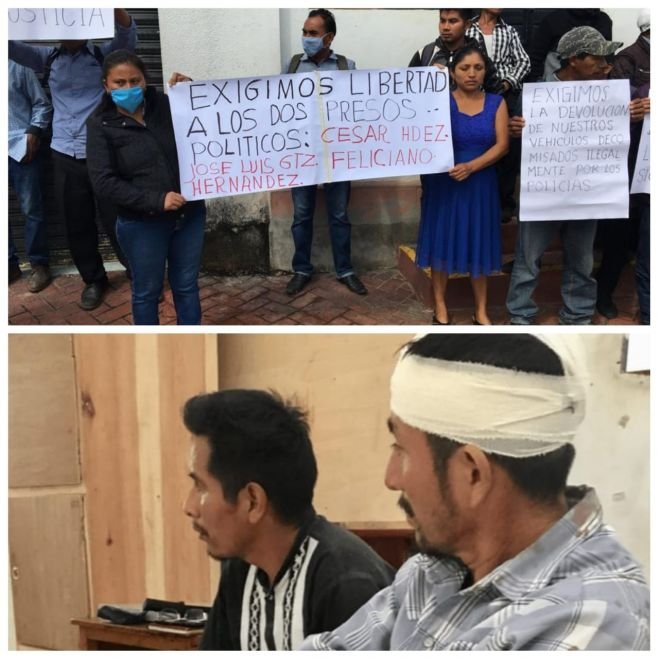 USTICIA
EXIGIMOS LIBERTAD
A LOS DOS PRESOS..
POLITICOS: CESAR HDEZ.
JOSE LUIS GTZ. FELICIANO.
HERNANDEZ.
EXIGIMOS
LA DEVOLUCION
DE NUESTROS
VEHICULOS DECO
MISADOS ILEGAL
MENTE POR LOS
POLICIAS.